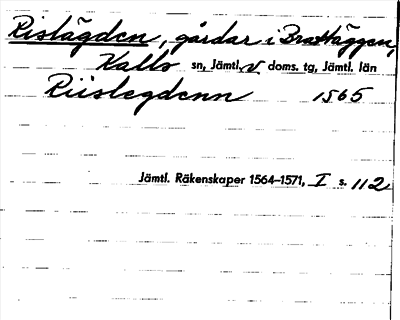 Rislägden, gårdar i Brattäggen,
Kalls sn, Jämtl. v doms. tg, Jämtl. län
Riislegdenn 1565
Jämtl. Räkenskaper 1564-1571, I s. 112